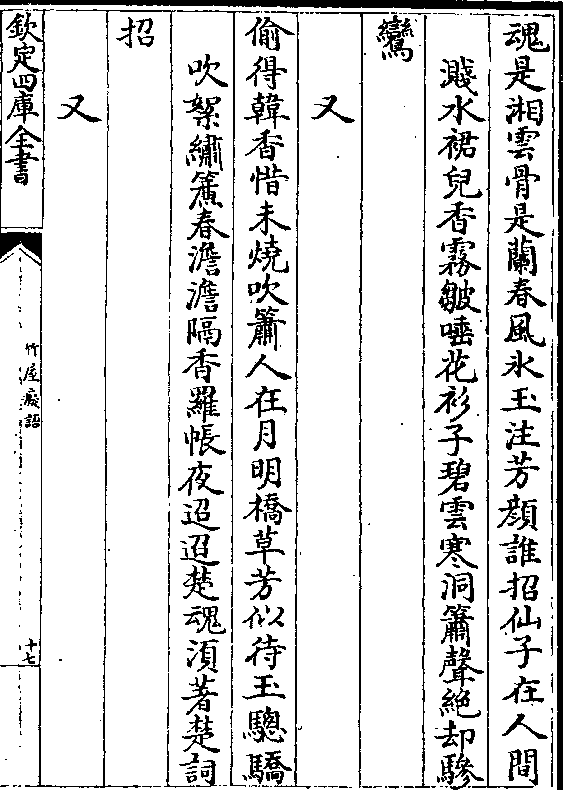 魂是湘雲骨是蘭春風氷玉注芳顔誰招仙子在人間
濺水裙兒香霧皺唾花衫子碧雲寒洞簫聲絶却驂
鸞
又
偷得韓香惜未燒吹簫人在月明橋草芳似待玉驄驕
吹絮繡簾春澹澹隔香羅帳夜迢迢楚魂湏著楚詞
招
又
欽定四庫全書
竹屋癡語
十七